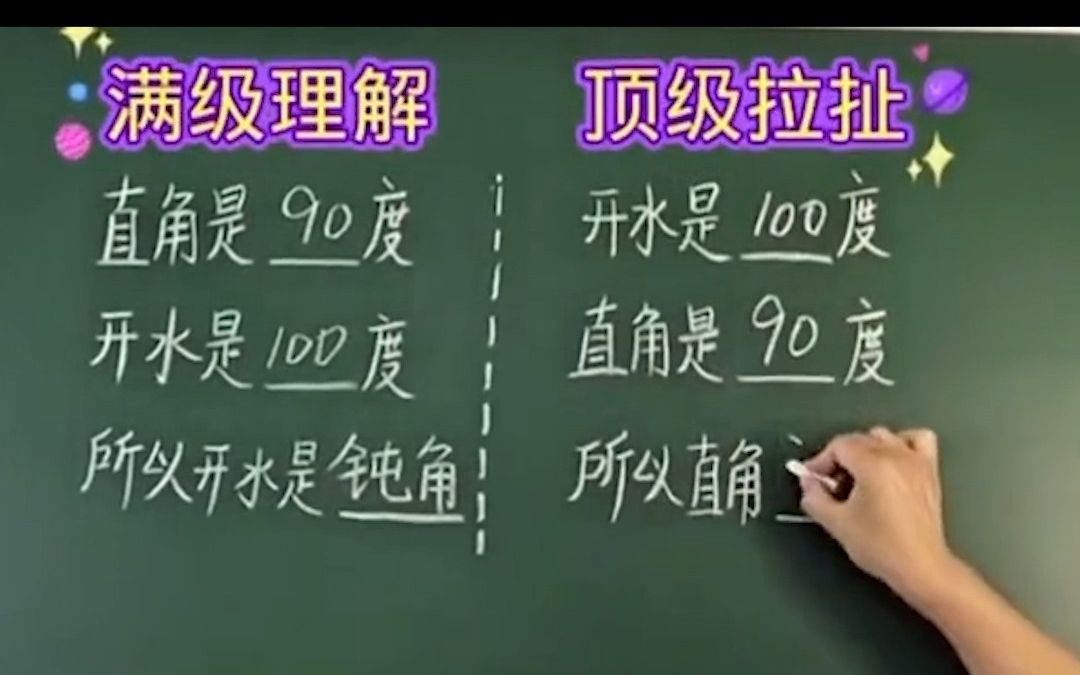 满级理解
直角是90度
开水是100度
所以开水是钝角
顶级拉扯
开水是100度
直角是90度
所以直角